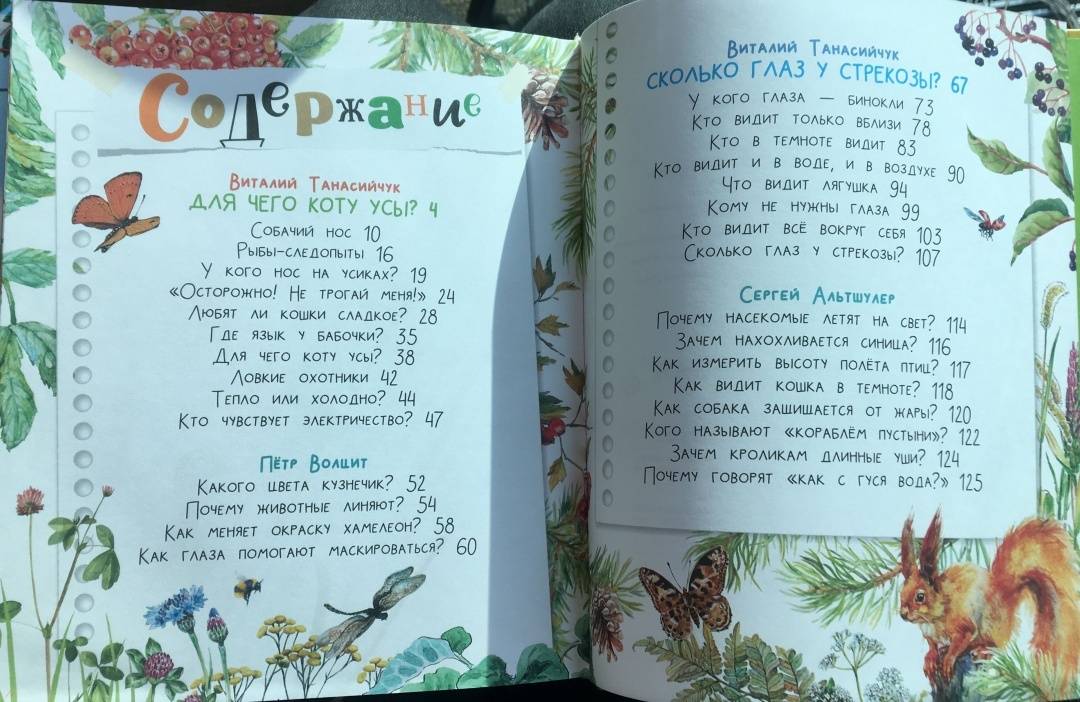 Содержание
Виталий Танасийчук
ДЛЯ ЧЕГО КОТУ УСЫ? 4
Собачий нос 10
Рыбы-следопыты 16
У кого нос на усиках? 19
«Осторожно! Не трогай меня!» 24
Любят ли кошки сладкое? 28
Где язык у бабочки? 35
Для чего коту усы? 38
Ловкие охотники 42
Тепло или холодно? 44
Кто чувствует электричество? 47
Пётр Волцит
Какого цвета кузнечик? 52
Почему животные линяют? 54
Как меняет окраску хамелеон? 58
Как глаза помогают маскироваться? 60
Виталий Танасийчук
СКОЛЬКО ГЛАЗ У СТРЕКОЗЫ? 67
У кого глаза — бинокли 73
Кто видит только вблизи 78
Кто в темноте видит 83
Кто видит и в воде, и в воздухе 90
Что видит лягушка 94
Кому не нужны глаза 99
Кто видит всё вокруг себя 103
Сколько глаз у стрекозы? 107
Сергей Альтшулер
Почему насекомые летят на свет? 114
Зачем нахохливается синица? 116
Как измерить высоту полёта птиц? 117
Как видит кошка в темноте? 118
Как собака защищается от жары? 120
Кого называют «кораблём пустыни»? 122
Зачем кроликам длинные уши? 124
Почему говорят «как с гуся вода?» 125